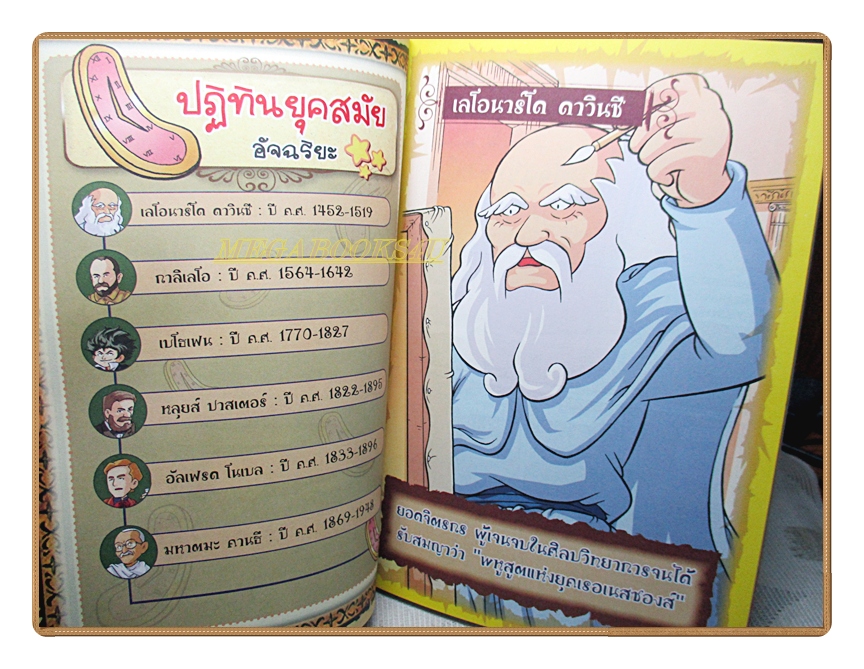 ปฏิทินยุคสมัย
อัจฉริยะ
เลโอนาร์โด ดาวินชี : ปี ค.ศ. 1452-1519
กาลิเลโอ : ปี ค.ศ. 1564-1642
เบโธเฟน : ปี ค.ศ. 1770-1827
หลุยส์ ปาสเตอร์ : ปี ค.ศ. 1822-1895
อัลเฟรด โนเบล : ปี ค.ศ. 1833-1896
มหาตมะ คานธี : ปี ค.ศ. 1869-1948
MEGABOOKS4U
เลโอนาร์โด ดาวินชี
ยอดจิตรกร ผู้เจนจบในศิลปวิทยาการจนได้
รับสมญาว่า "พหูสูตแห่งยุคเรอเนสซองส์"